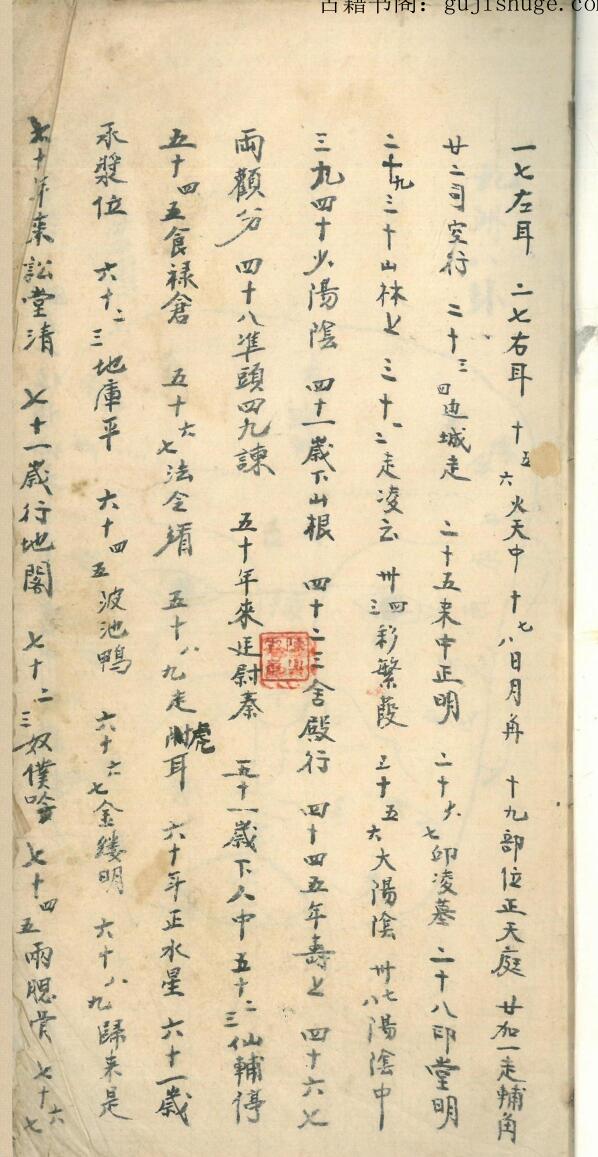 古籍书阁：gujishuge.co
一七左耳 二七右耳 十五六火天中 十七八日月角 十九部位正天庭 廿加一走輔角
廿二司空行 二十三四边城走 二十五来中正明 二十六七印凌墓 二十八印堂明
二十九三十山林上 三十一二走凌云 卅三四彩繁葭 三十五六大陽陰 卅七八陽陰中
三九四十少陽陰 四十一歲下山根 四十二三舍殿行 四十四五年壽上 四十六七
兩顴分 四十八準頭四九諫 五十年來廷尉奏 五十一歲下人中 五十二三仙輔停
五十四五食禄倉 五十六七法令 五十八九走虎耳 六十年正水星 六十一歲
承漿位 六十二三地庫平 六十四五波池鴨 六十六七金縷明 六十八九歸来是
七十年来訟堂清 七十一歲行地閣 七十二三奴僕 七十四五兩腮骨 七十六七